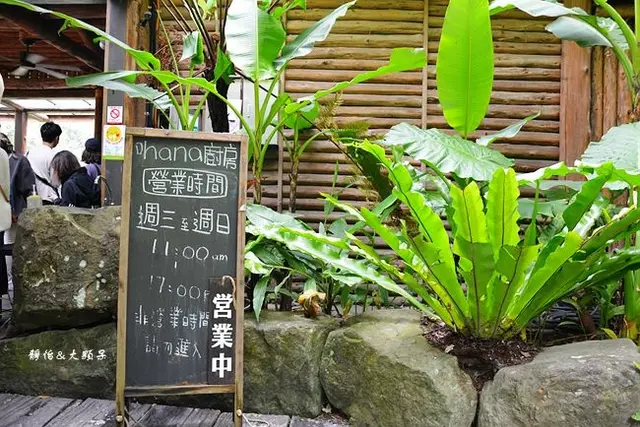 Ohana廚房
營業時間
週三至週日
11:00am
|
17:00
非營業時間
請勿進入
營業中
靜怡&大顆呆